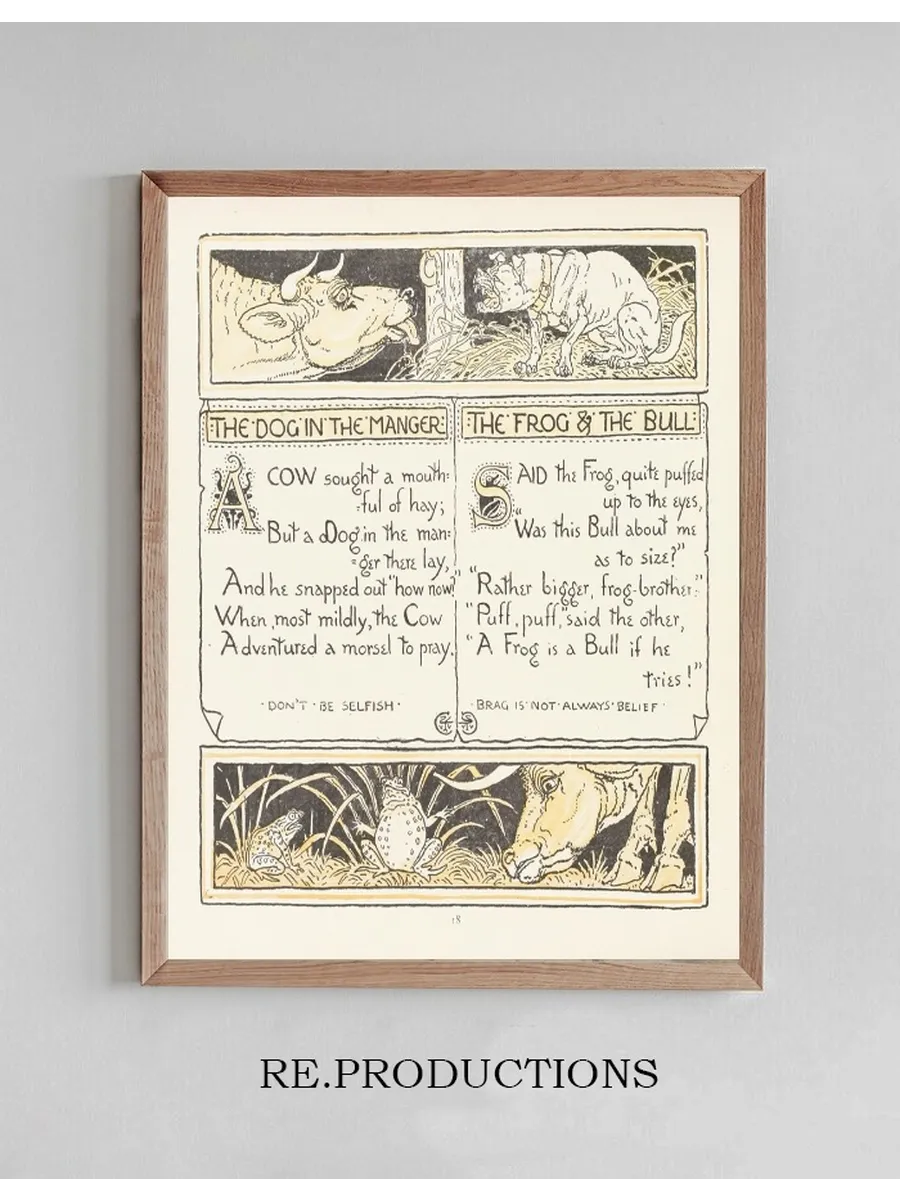 THE DOG IN THE MANGER
A COW sought a mouth=
=ful of hay;
But a Dog in the man=
=ger there lay,
And he snapped out "how now?"
When, most mildly, the Cow
Adventured a morsel to pray.
·DON'T·BE SELFISH·
THE FROG & THE BULL
SAID the Frog, quite puffed
up to the eyes,
"Was this Bull about me
as to size?"
"Rather bigger, frog-brother."
"Puff, puff," said the other,
"A Frog is a Bull if he
tries!"
·BRAG IS·NOT·ALWAYS·BELIEF·
18
RE.PRODUCTIONS